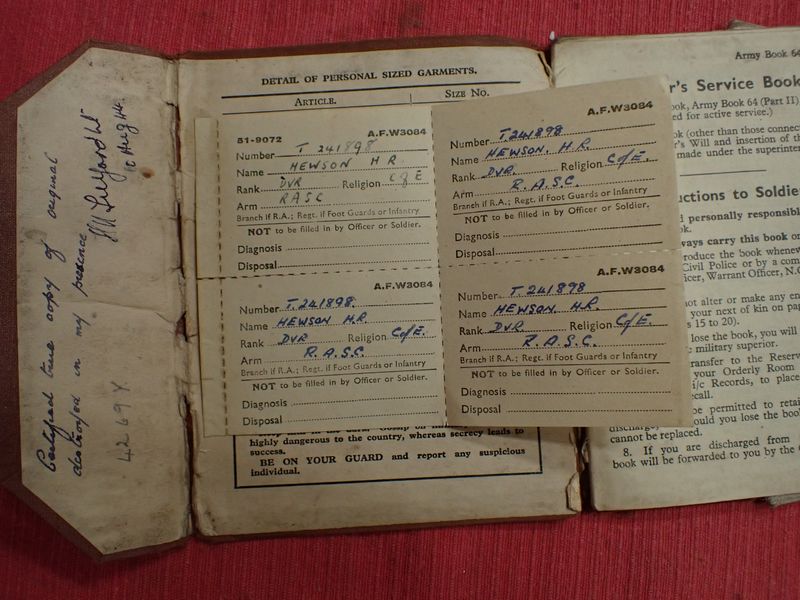 Certified true copy of original
destroyed in my presence
Lt
10 Aug 44.
4269Y.
DETAIL OF PERSONAL SIZED GARMENTS.
ARTICLE. SIZE NO.
51-9072 A.F.W3084
Number T 241898
Name HEWSON H R
Rank DVR Religion C of E
Arm RASC
Branch if R.A.; Regt. if Foot Guards or Infantry
NOT to be filled in by Officer or Soldier.
Diagnosis
Disposal
A.F.W3084
Number T.241898
Name HEWSON. H.R.
Rank DVR. Religion C of E.
Arm R.A.S.C.
Branch if R.A.; Regt. if Foot Guards or Infantry
NOT to be filled in by Officer or Soldier.
Diagnosis
Disposal
A.F.W3084
Number T.241898.
Name HEWSON H.R.
Rank DVR Religion C of E.
Arm R.A.S.C.
Branch if R.A.; Regt. if Foot Guards or Infantry
NOT to be filled in by Officer or Soldier.
Diagnosis
Disposal
A.F.W3084
Number T.241898
Name HEWSON. H.R.
Rank DVR Religion C of E.
Arm R.A.S.C.
Branch if R.A.; Regt. if Foot Guards or Infantry
NOT to be filled in by Officer or Soldier.
Diagnosis
Disposal
highly dangerous to the country, whereas secrecy leads to
success.
BE ON YOUR GUARD and report any suspicious
individual.
Army Book 64
r's Service Book
ook, Army Book 64 (Part II)
ed for active service.)
ok (other than those connec
r's Will and insertion of the
made under the superinten
uctions to Soldier
d personally responsible
ok.
ways carry this book on
roduce the book whenever
Civil Police or by a comp
er, Warrant Officer, N.C
not alter or make any en
your next of kin on pag
s 15 to 20).
lose the book, you will
military superior.
ransfer to the Reserve
your Orderly Room
i/c Records, to place
ecall.
be permitted to retain
discharge, should you lose the book
cannot be replaced.
8. If you are discharged from
book will be forwarded to you by the